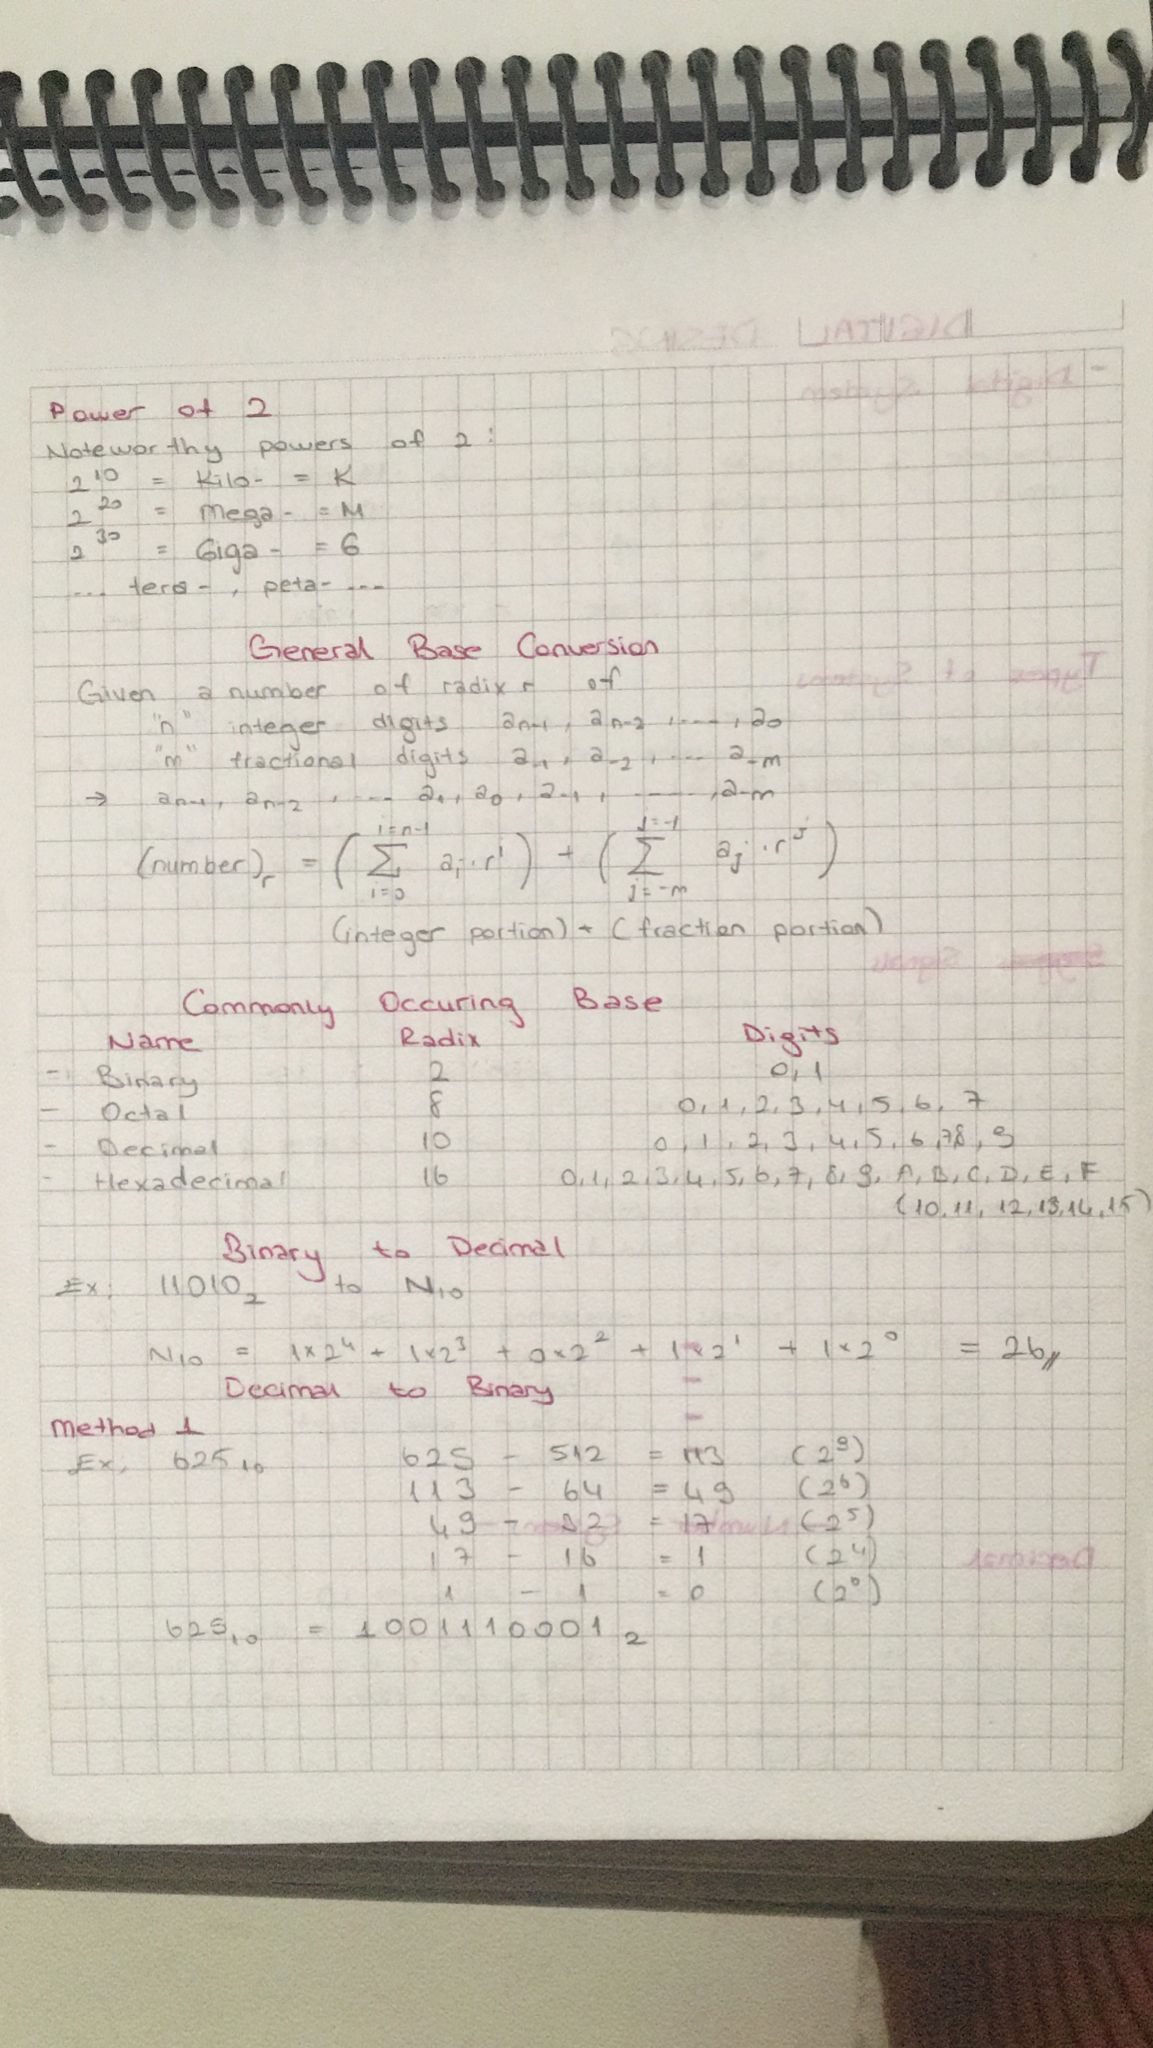 Power of 2
Noteworthy powers of 2:
2^10 = Kilo- = K
2^20 = Mega- = M
2^30 = Giga- = G
... tera-, peta- ...
General Base Conversion
Given a number of radix r of
"n" integer digits a_n-1, a_n-2, ...., a_0
"m" fractional digits a_-1, a_-2, .... a_-m
→ a_n-1, a_n-2, .... a_1, a_0, a_-1, ......, a_-m
(number)_r = (∑_{i=0}^{i=n-1} a_i . r^i) + (∑_{j=-m}^{j=-1} a_j . r^j)
(integer portion) + (fraction portion)
Commonly Occuring Base
Name Radix Digits
- Binary 2 0, 1
- Octal 8 0, 1, 2, 3, 4, 5, 6, 7
- Decimal 10 0, 1, 2, 3, 4, 5, 6, 7 8, 9
- Hexadecimal 16 0, 1, 2, 3, 4, 5, 6, 7, 8, 9, A, B, C, D, E, F
(10, 11, 12, 13, 14, 15)
Binary to Decimal
Ex: 11010_2 to N_10
N_10 = 1x2^4 + 1x2^3 + 0x2^2 + 1x2^1 + 1x2^0 = 26//
Decimal to Binary
Method 1
Ex. 625_10 625 - 512 = 113 (2^9)
113 - 64 = 49 (2^6)
49 - 32 = 17 (2^5)
17 - 16 = 1 (2^4)
1 - 1 = 0 (2^0)
625_10 = 1001110001_2